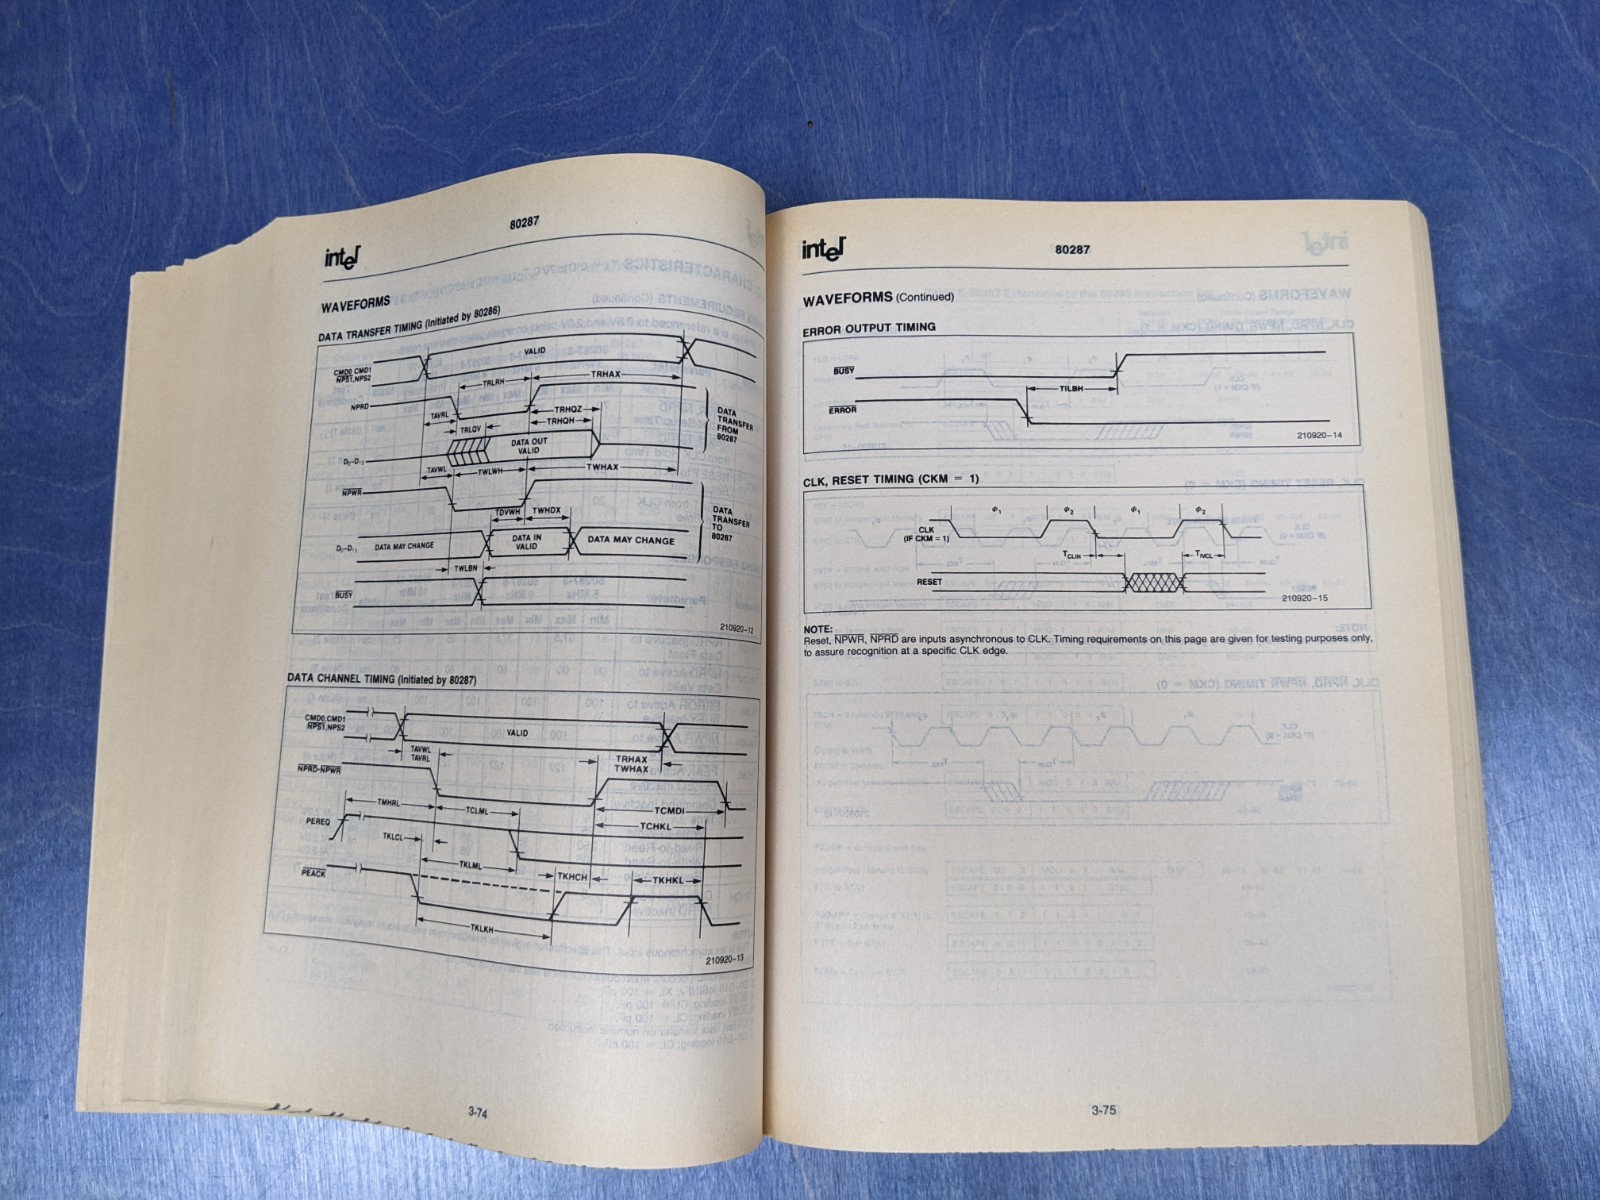 80287
intel
WAVEFORMS
DATA TRANSFER TIMING (Initiated by 80286)
CMD0, CMD1
NPS1, NPS2
VALID
TRLRH
TRHAX
NPRD
TAVRL
TRHQZ
TRHQH
TRLQV
DATA
TRANSFER
FROM
80287
D0–D15
DATA OUT
VALID
TAVWL
TWLWH
TWHAX
NPWR
TDVWH
TWHDX
DATA
TRANSFER
TO
80287
D0–D15
DATA MAY CHANGE
DATA IN
VALID
DATA MAY CHANGE
TWLBN
BUSY
210920–12
DATA CHANNEL TIMING (Initiated by 80287)
CMD0, CMD1
NPS1, NPS2
VALID
TAVWL
TAVRL
TRHAX
TWHAX
NPRD-NPWR
TMHRL
TCLML
TCMDI
PEREQ
TKLCL
TCHKL
TKLML
TKHCH
TKHKL
PEACK
TKLKH
210920–13
3-74
intel
80287
WAVEFORMS (Continued)
ERROR OUTPUT TIMING
BUSY
TILBH
ERROR
210920–14
CLK, RESET TIMING (CKM = 1)
ϕ1
ϕ2
ϕ1
ϕ2
CLK
(IF CKM = 1)
TCLIH
TIVCL
RESET
210920–15
NOTE:
Reset, NPWR, NPRD are inputs asynchronous to CLK. Timing requirements on this page are given for testing purposes only,
to assure recognition at a specific CLK edge.
3-75